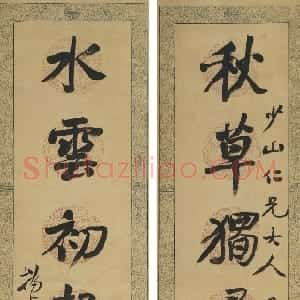 秋草獨
少山仁兄大人
水雲初
Shufaziliao.com